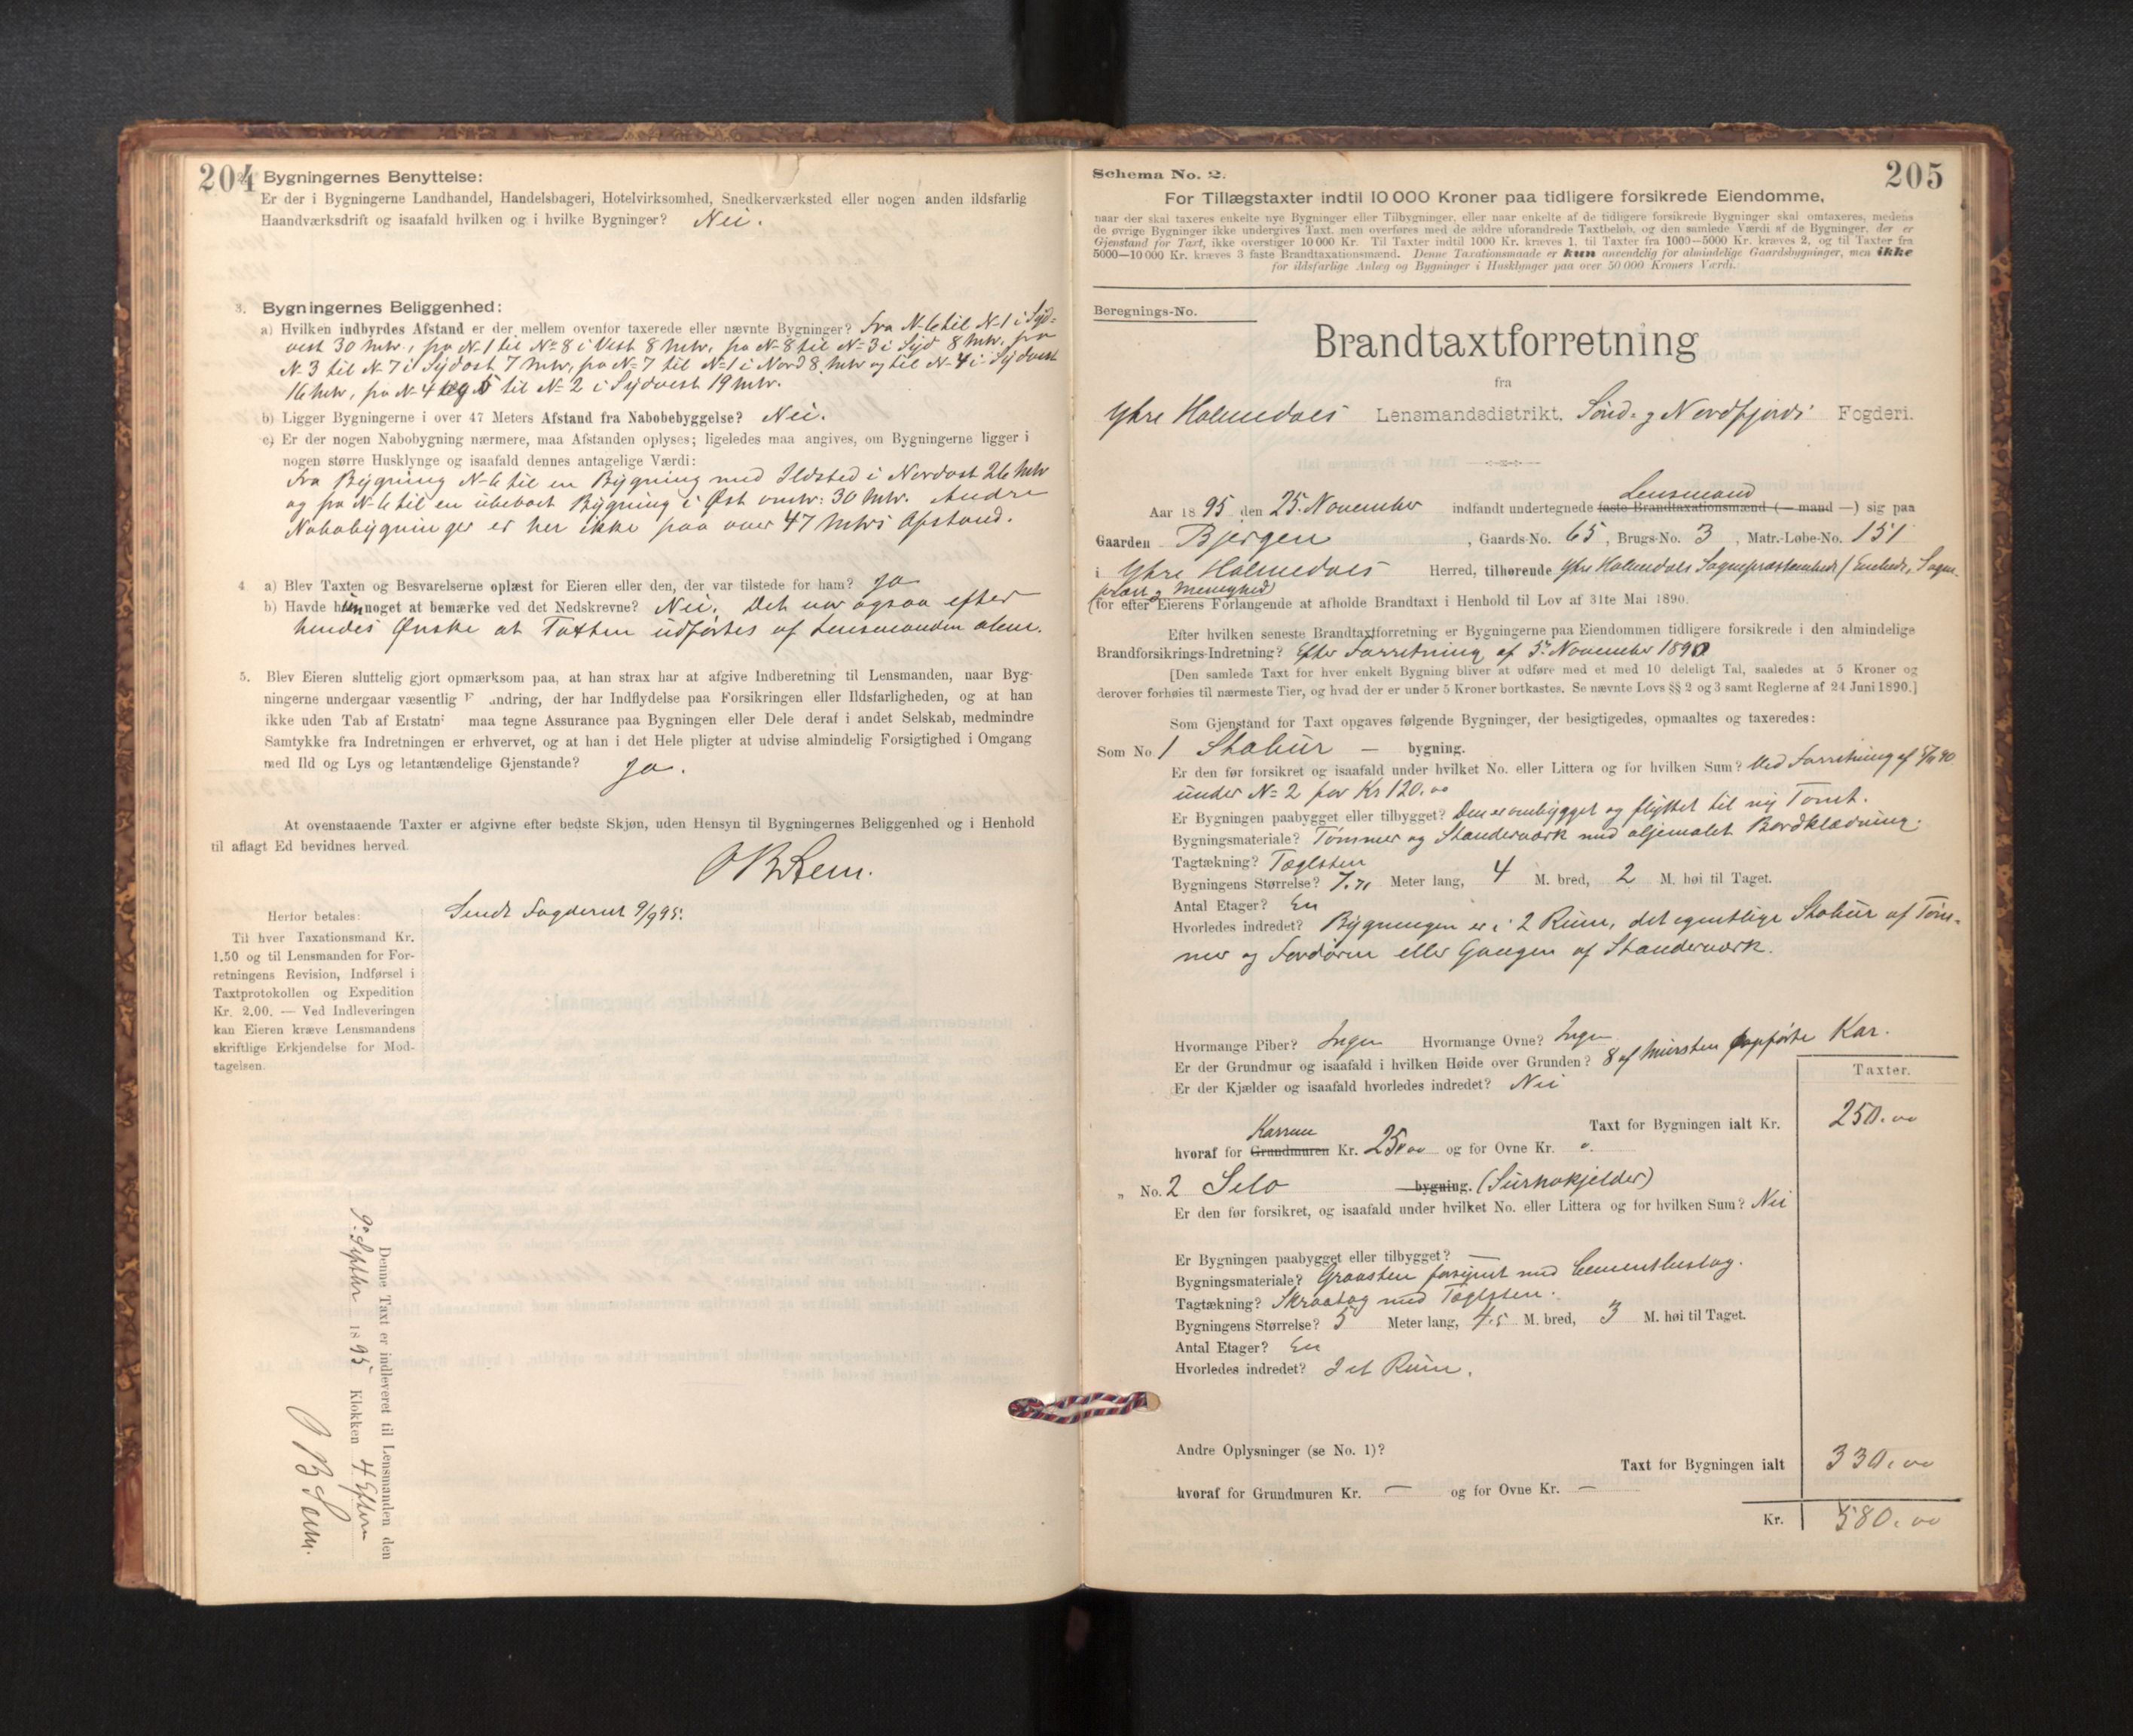 204
Bygningernes Benyttelse:
Er der i Bygningerne Landhandel, Handelsbageri, Hotelvirksomhed, Snedkerværksted eller nogen anden ildsfarlig
Haandværksdrift og isaafald hvilken og i hvilke Bygninger? Nei.
3. Bygningernes Beliggenhed:
a) Hvilken indbyrdes Afstand er der mellem ovenfor taxerede eller nævnte Bygninger? Fra N-6 til N-1 i Syd-
vest 30 Mtr., fra N-1 til No 8 i Vest 8 Mtr., fra N-8 til N-3 i Syd 8 Mtr., fra
N-3 til N-7 i Sydost 7 Mtr, fra N-7 til N-1 i Nord 8 Mtr og til N-4 i Sydvest
16 Mtr, fra N-4 og 5 til N-2 i Sydvest 19 Mtr.
b) Ligger Bygningerne i over 47 Meters Afstand fra Nabobebyggelse? Nei.
c) Er der nogen Nabobygning nærmere, maa Afstanden oplyses; ligeledes maa angives, om Bygningerne ligger i
nogen større Husklynge og isaafald dennes antagelige Værdi:
Fra Bygning N-6 til en Bygning med Ildsted i Nordost 26 Mtr
og fra N-6 til en ubeboet Bygning i Øst omtr: 30 Mtr. Andre
Nabobygninger er her ikke paa over 47 Mtrs Afstand.
4 a) Blev Taxten og Besvarelserne oplæst for Eieren eller den, der var tilstede for ham? Ja
b) Havde hun noget at bemærke ved det Nedskrevne? Nei. Det var ogsaa efter
hendes Ønske at Taxten udførtes af Lensmanden alene.
5. Blev Eieren sluttelig gjort opmærksom paa, at han strax har at afgive Indberetning til Lensmanden, naar Byg-
ningerne undergaar væsentlig F andring, der har Indflydelse paa Forsikringen eller Ildsfarligheden, og at han
ikke uden Tab af Erstatn maa tegne Assurance paa Bygningen eller Dele deraf i andet Selskab, medmindre
Samtykke fra Indretningen er erhvervet, og at han i det Hele pligter at udvise almindelig Forsigtighed i Omgang
med Ild og Lys og letantændelige Gjenstande? Ja.
At ovenstaaende Taxter er afgivne efter bedste Skjøn, uden Hensyn til Bygningernes Beliggenhed og i Henhold
til aflagt Ed bevidnes herved.
O B Sem.
Herfor betales:
Til hver Taxationsmand Kr.
1.50 og til Lensmanden for For-
retningens Revision, Indførsel i
Taxtprotokollen og Expedition
Kr. 2.00. — Ved Indleveringen
kan Eieren kræve Lensmandens
skriftlige Erkjendelse for Mod-
tagelsen.
Sendt Fogderiet 9/9 95.
Denne Taxt er indleveret til Lensmanden den
9. Septbr 1895 Klokken 4 Efterm
O B Sem.
205
Schema No. 2.
For Tillægstaxter indtil 10 000 Kroner paa tidligere forsikrede Eiendomme,
naar der skal taxeres enkelte nye Bygninger eller Tilbygninger, eller naar enkelte af de tidligere forsikrede Bygninger skal omtaxeres, medens
de øvrige Bygninger ikke undergives Taxt, men overføres med de ældre uforandrede Taxtbeløb, og den samlede Værdi af de Bygninger, der er
Gjenstand for Taxt, ikke overstiger 10 000 Kr. Til Taxter indtil 1000 Kr. kræves 1, til Taxter fra 1000—5000 Kr. kræves 2, og til Taxter fra
5000—10 000 Kr. kræves 3 faste Brandtaxationsmænd. Denne Taxationsmaade er kun anvendelig for almindelige Gaardsbygninger, men ikke
for ildsfarlige Anlæg og Bygninger i Husklynger paa over 50 000 Kroners Værdi.
Beregnings-No.
Brandtaxtforretning
fra
Ytre Holmedals Lensmandsdistrikt, Sønd- og Nordfjords Fogderi.
Lensmand
Aar 1895 den 25. November indfandt undertegnede faste Brandtaxationsmænd (— mand —) sig paa
Gaarden Bjergen, Gaards-No. 65, Brugs-No. 3, Matr.-Løbe-No. 151
i Ytre Holmedals Herred, tilhørende Ytre Holmedals Sognepræstembede (Enkede, Sogne-
præst og Menighed)
for efter Eierens Forlangende at afholde Brandtaxt i Henhold til Lov af 31te Mai 1890.
Efter hvilken seneste Brandtaxtforretning er Bygningerne paa Eiendommen tidligere forsikrede i den almindelige
Brandforsikrings-Indretning? Efter Forretning af 5. November 1890
[Den samlede Taxt for hver enkelt Bygning bliver at udføre med et med 10 deleligt Tal, saaledes at 5 Kroner og
derover forhøies til nærmeste Tier, og hvad der er under 5 Kroner bortkastes. Se nævnte Lovs §§ 2 og 3 samt Reglerne af 24 Juni 1890.]
Som Gjenstand for Taxt opgaves følgende Bygninger, der besigtigedes, opmaaltes og taxeredes:
Som No. 1 Stabur — bygning.
Er den før forsikret og isaafald under hvilket No. eller Littera og for hvilken Sum? Ved Forretning af 5/11 90
under N= 2 for Kr 120.00
Er Bygningen paabygget eller tilbygget? Den er ombygget og flyttet til ny Tomt.
Bygningsmateriale? Tømmer og Standerværk med oljemalet Bordklædning.
Tagtækning? Taglsten
Bygningens Størrelse? 7.71 Meter lang, 4 M. bred, 2 M. høi til Taget.
Antal Etager? En
Hvorledes indredet? Bygningen er i 2 Rum, det egentlige Stabur af Tøm-
mer og Fordøren eller Gangen af Standerværk.
Hvormange Piber? Ingen Hvormange Ovne? Ingen
Er der Grundmur og isaafald i hvilken Høide over Grunden? 8 af Mursten opførte Kar.
Er der Kjælder og isaafald hvorledes indredet? Nei
Taxter.
Taxt for Bygningen ialt Kr. 250.00
Karrene
hvoraf for Grundmuren Kr. 25.00 og for Ovne Kr. 0.
„ No. 2 Silo bygning. (Surhøkjelder)
Er den før forsikret, og isaafald under hvilket No. eller Littera og for hvilken Sum? Nei
Er Bygningen paabygget eller tilbygget? —
Bygningsmateriale? Graasten forsynet med Cementbeslag.
Tagtækning? Skraatag med Taglsten.
Bygningens Størrelse? 5 Meter lang, 4.5 M. bred, 3 M. høi til Taget.
Antal Etager? En
Hvorledes indredet? I et Rum.
Andre Oplysninger (se No. 1)?
Taxt for Bygningen ialt 330.00
hvoraf for Grundmuren Kr. — og for Ovne Kr. —
Kr. 580.00